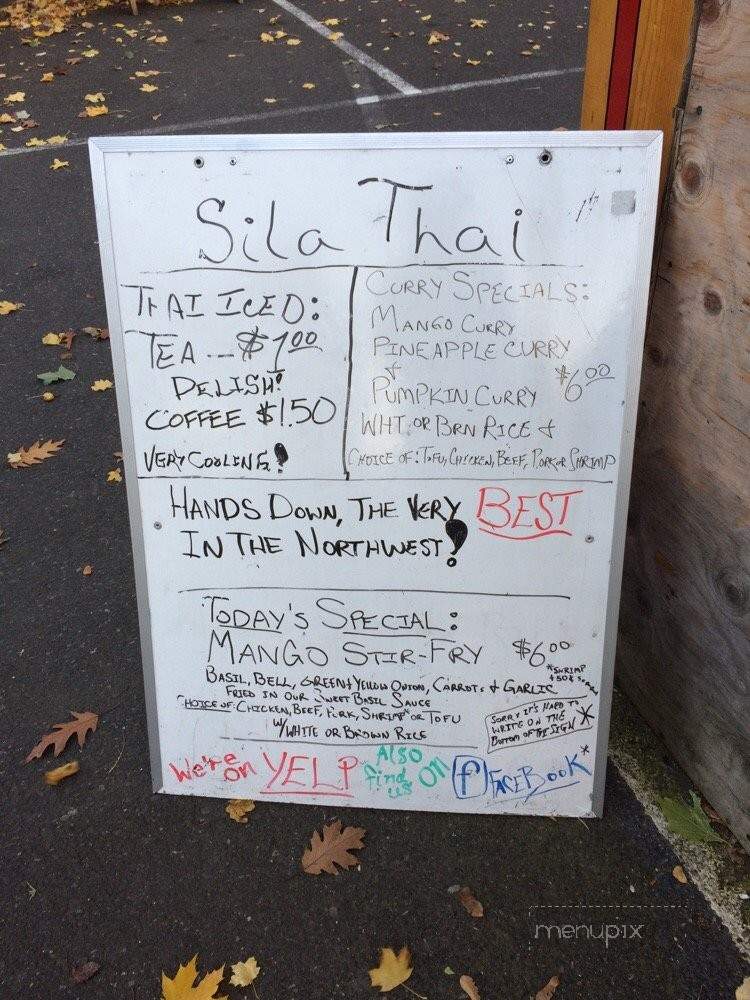 Sila Thai
THAI ICED:
TEA -- $1.00
DELISH!
COFFEE $1.50
VERY COOLING!
CURRY SPECIALS:
MANGO CURRY
PINEAPPLE CURRY
&
PUMPKIN CURRY $6.00
WHT. OR BRN RICE &
CHOICE OF: TOFU, CHICKEN, BEEF, PORK OR SHRIMP
HANDS DOWN, THE VERY BEST
IN THE NORTHWEST!
TODAY'S SPECIAL:
MANGO STIR-FRY $6.00
*SHRIMP
+50¢
BASIL, BELL, GREEN & YELLOW ONION, CARROTS & GARLIC
FRIED IN OUR SWEET BASIL SAUCE
CHOICE OF: CHICKEN, BEEF, PORK, SHRIMP* OR TOFU
W/WHITE OR BROWN RICE
SORRY IT'S HARD TO
WRITE ON THE
BOTTOM OF THE SIGN *
We're on YELP
Also find us on f FACEBOOK*
menupix